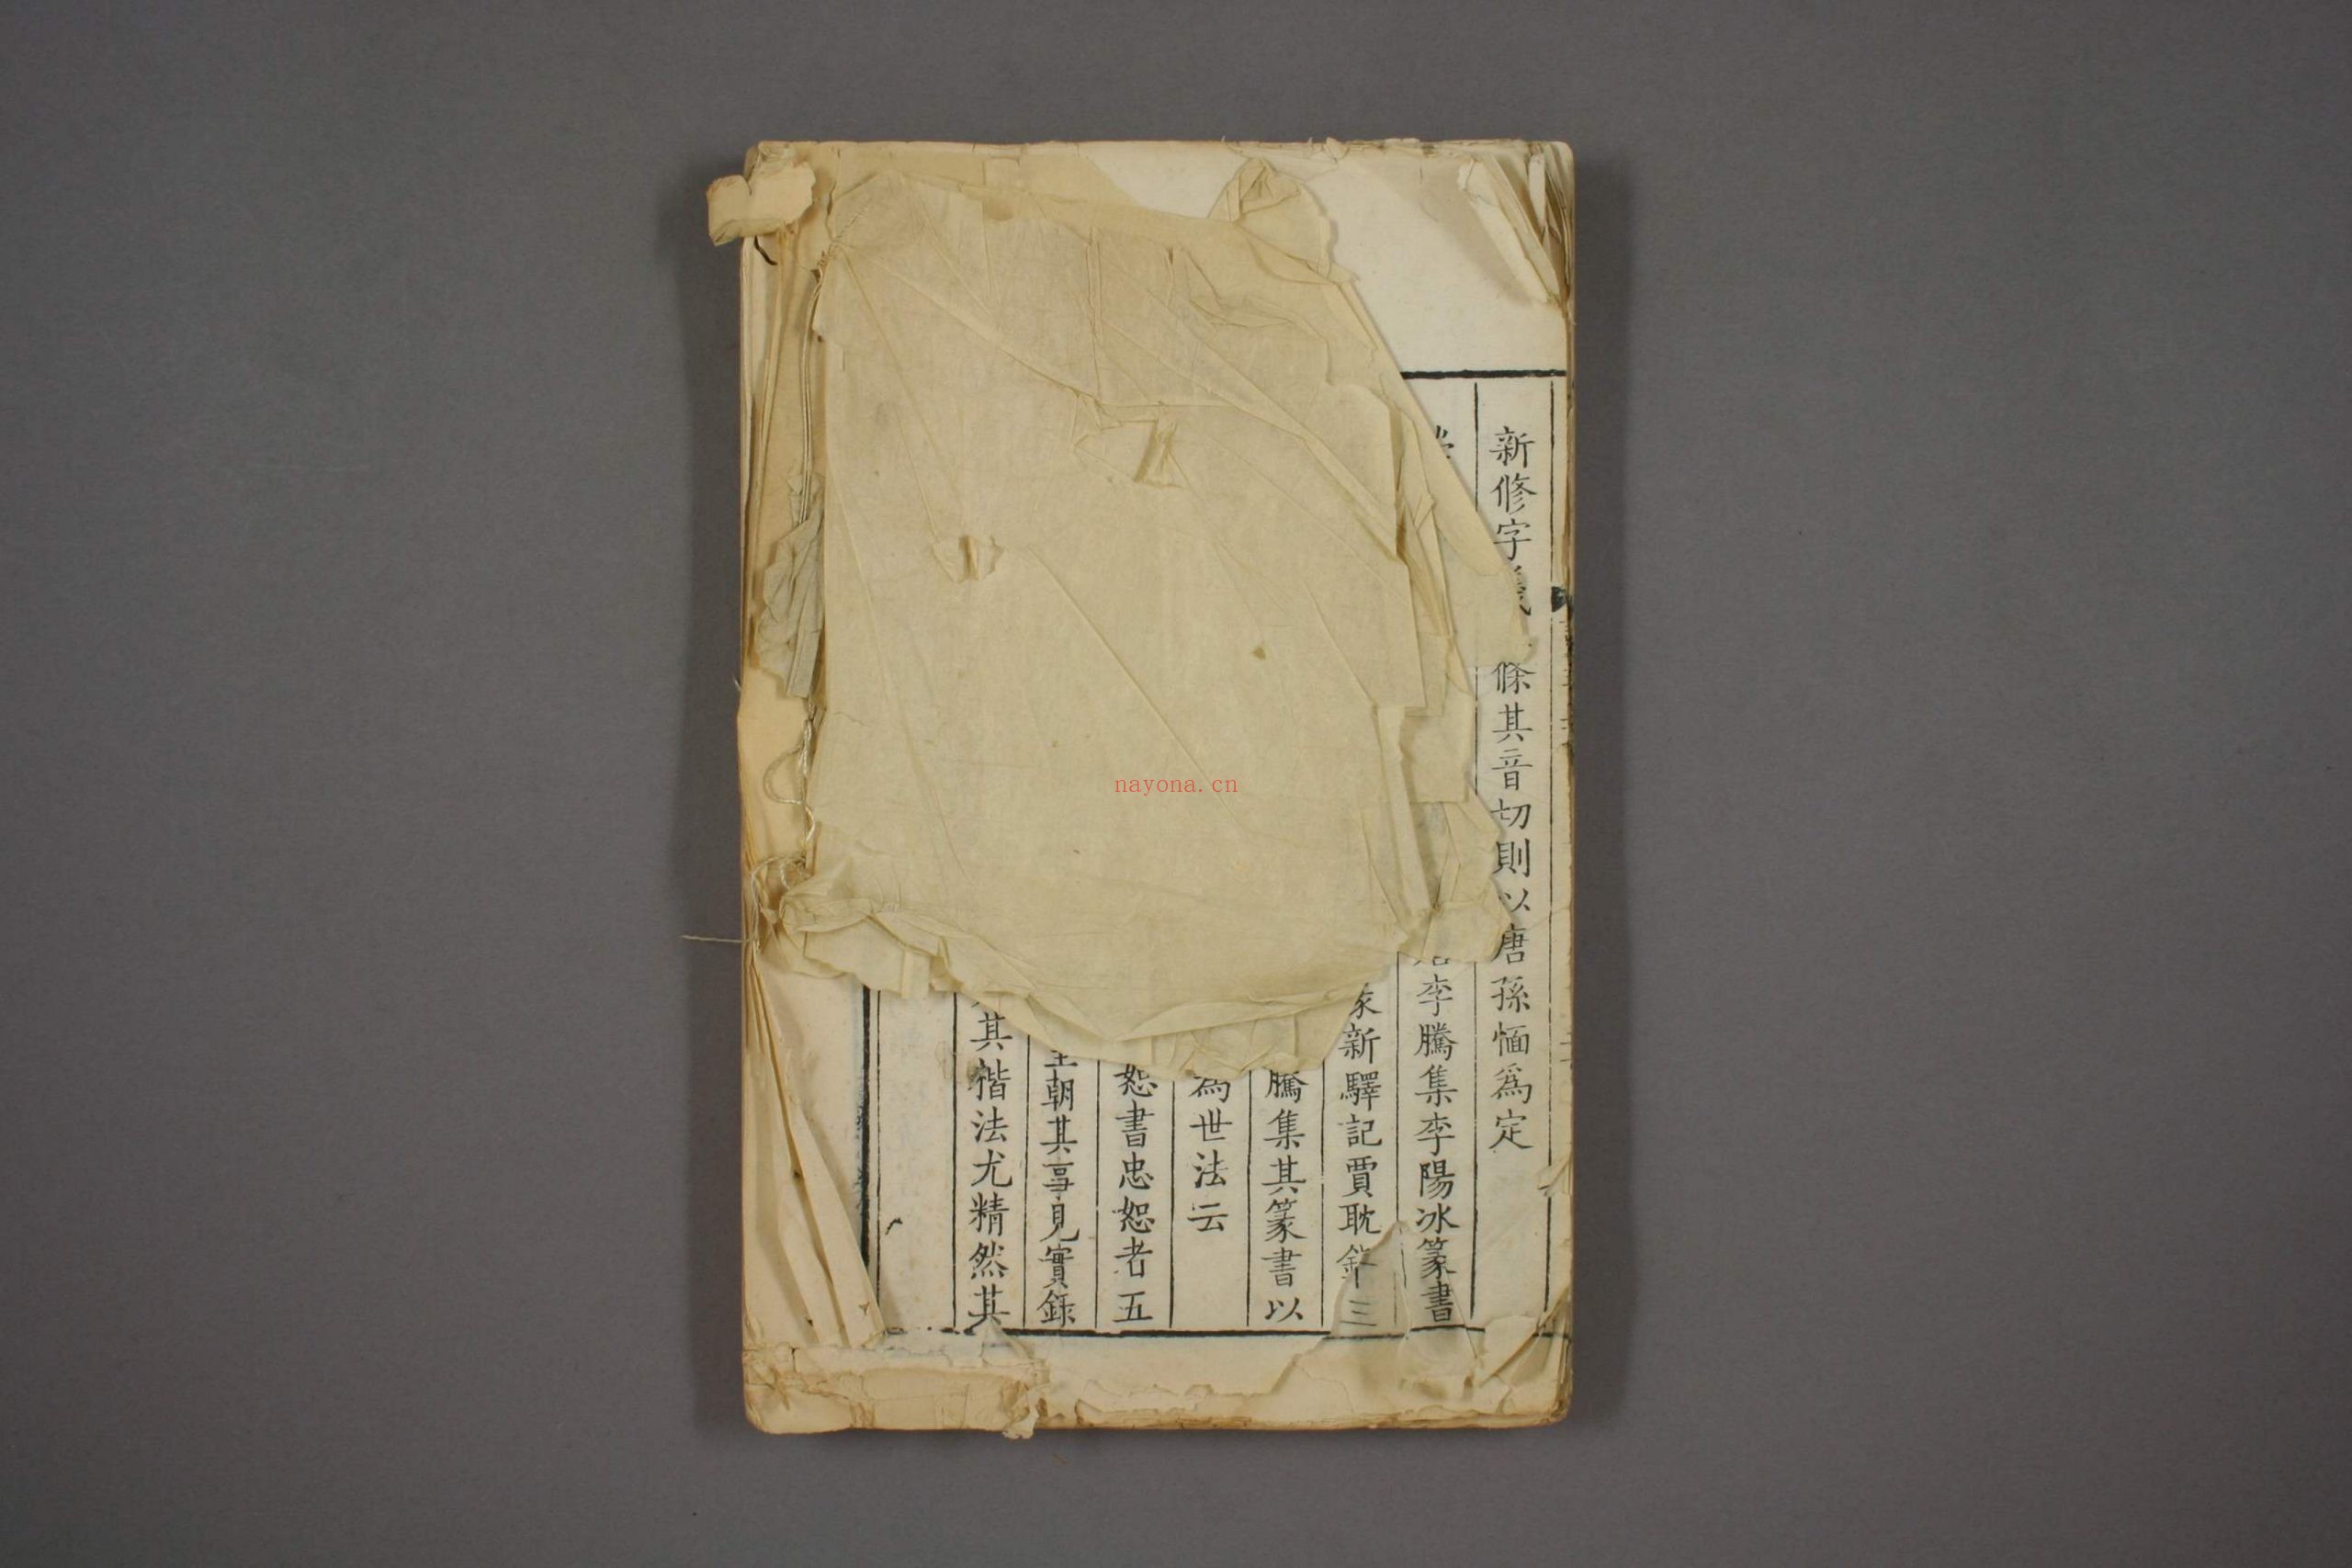 新修字義 條其音切則以唐孫愐爲定
李騰集李陽冰篆書
新驛記賈耽 三
騰集其篆書以
為世法云
恕書忠恕者五
朝其事見實錄
其楷法尤精然其
nayona.cn